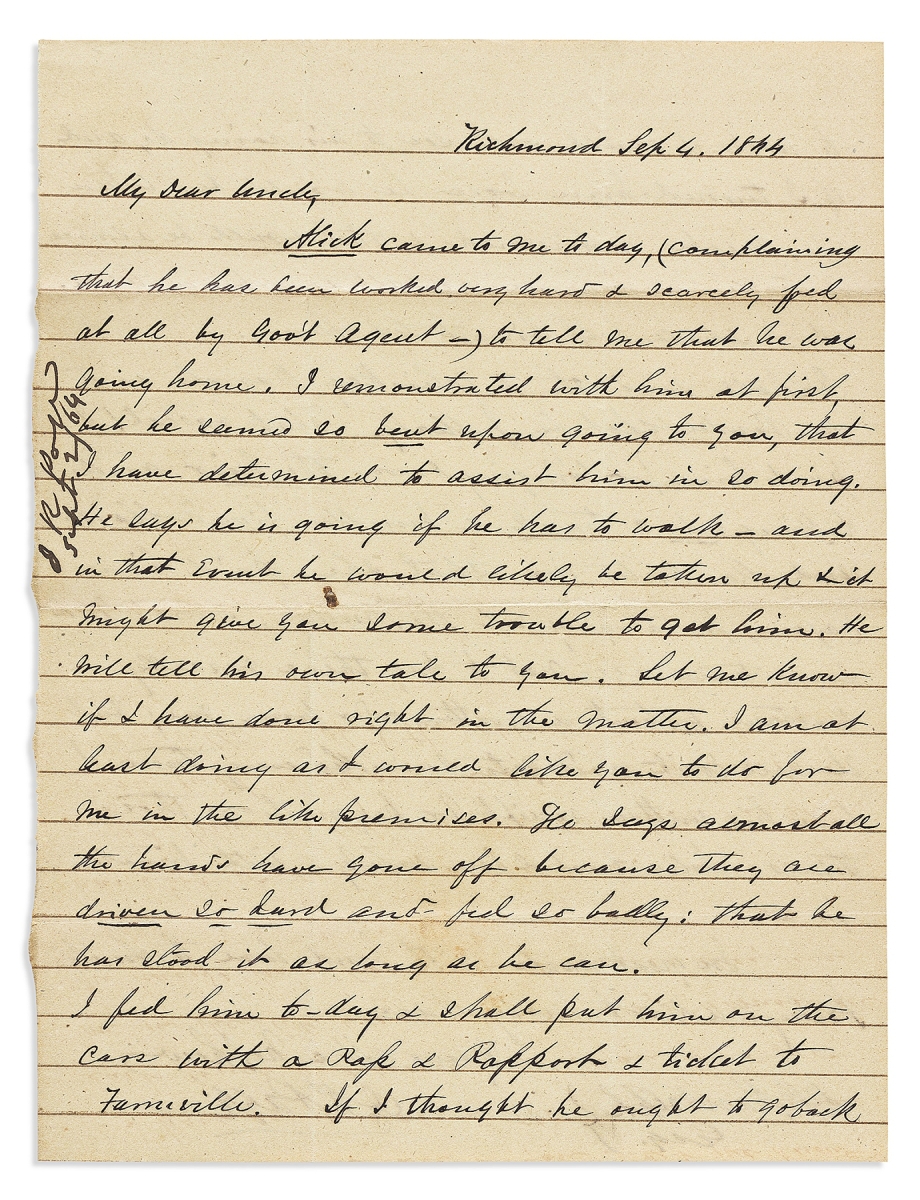 Richmond Sep 4. 1844
My Dear Uncle,
Alick came to me to day, (complaining
that he has been worked very hard & scarcely fed
at all by Gov't Agent —) to tell me that he was
going home. I remonstrated with him at first,
but he seemed so bent upon going to you, that
I have determined to assist him in so doing.
He says he is going if he has to walk — and
in that Event he would likely be taken up & it
might give you some trouble to get him. He
will tell his own tale to you. Let me know
if I have done right in the matter. I am at
least doing as I would like you to do for
me in the like premises. He says almost all
the hands have gone off because they are
driven so hard and fed so badly: that he
has stood it as long as he can.
I fed him to-day & shall put him on the
cars with a Pap & Rapport & ticket to
Farmville. If I thought he ought to go back
Sept 2/64